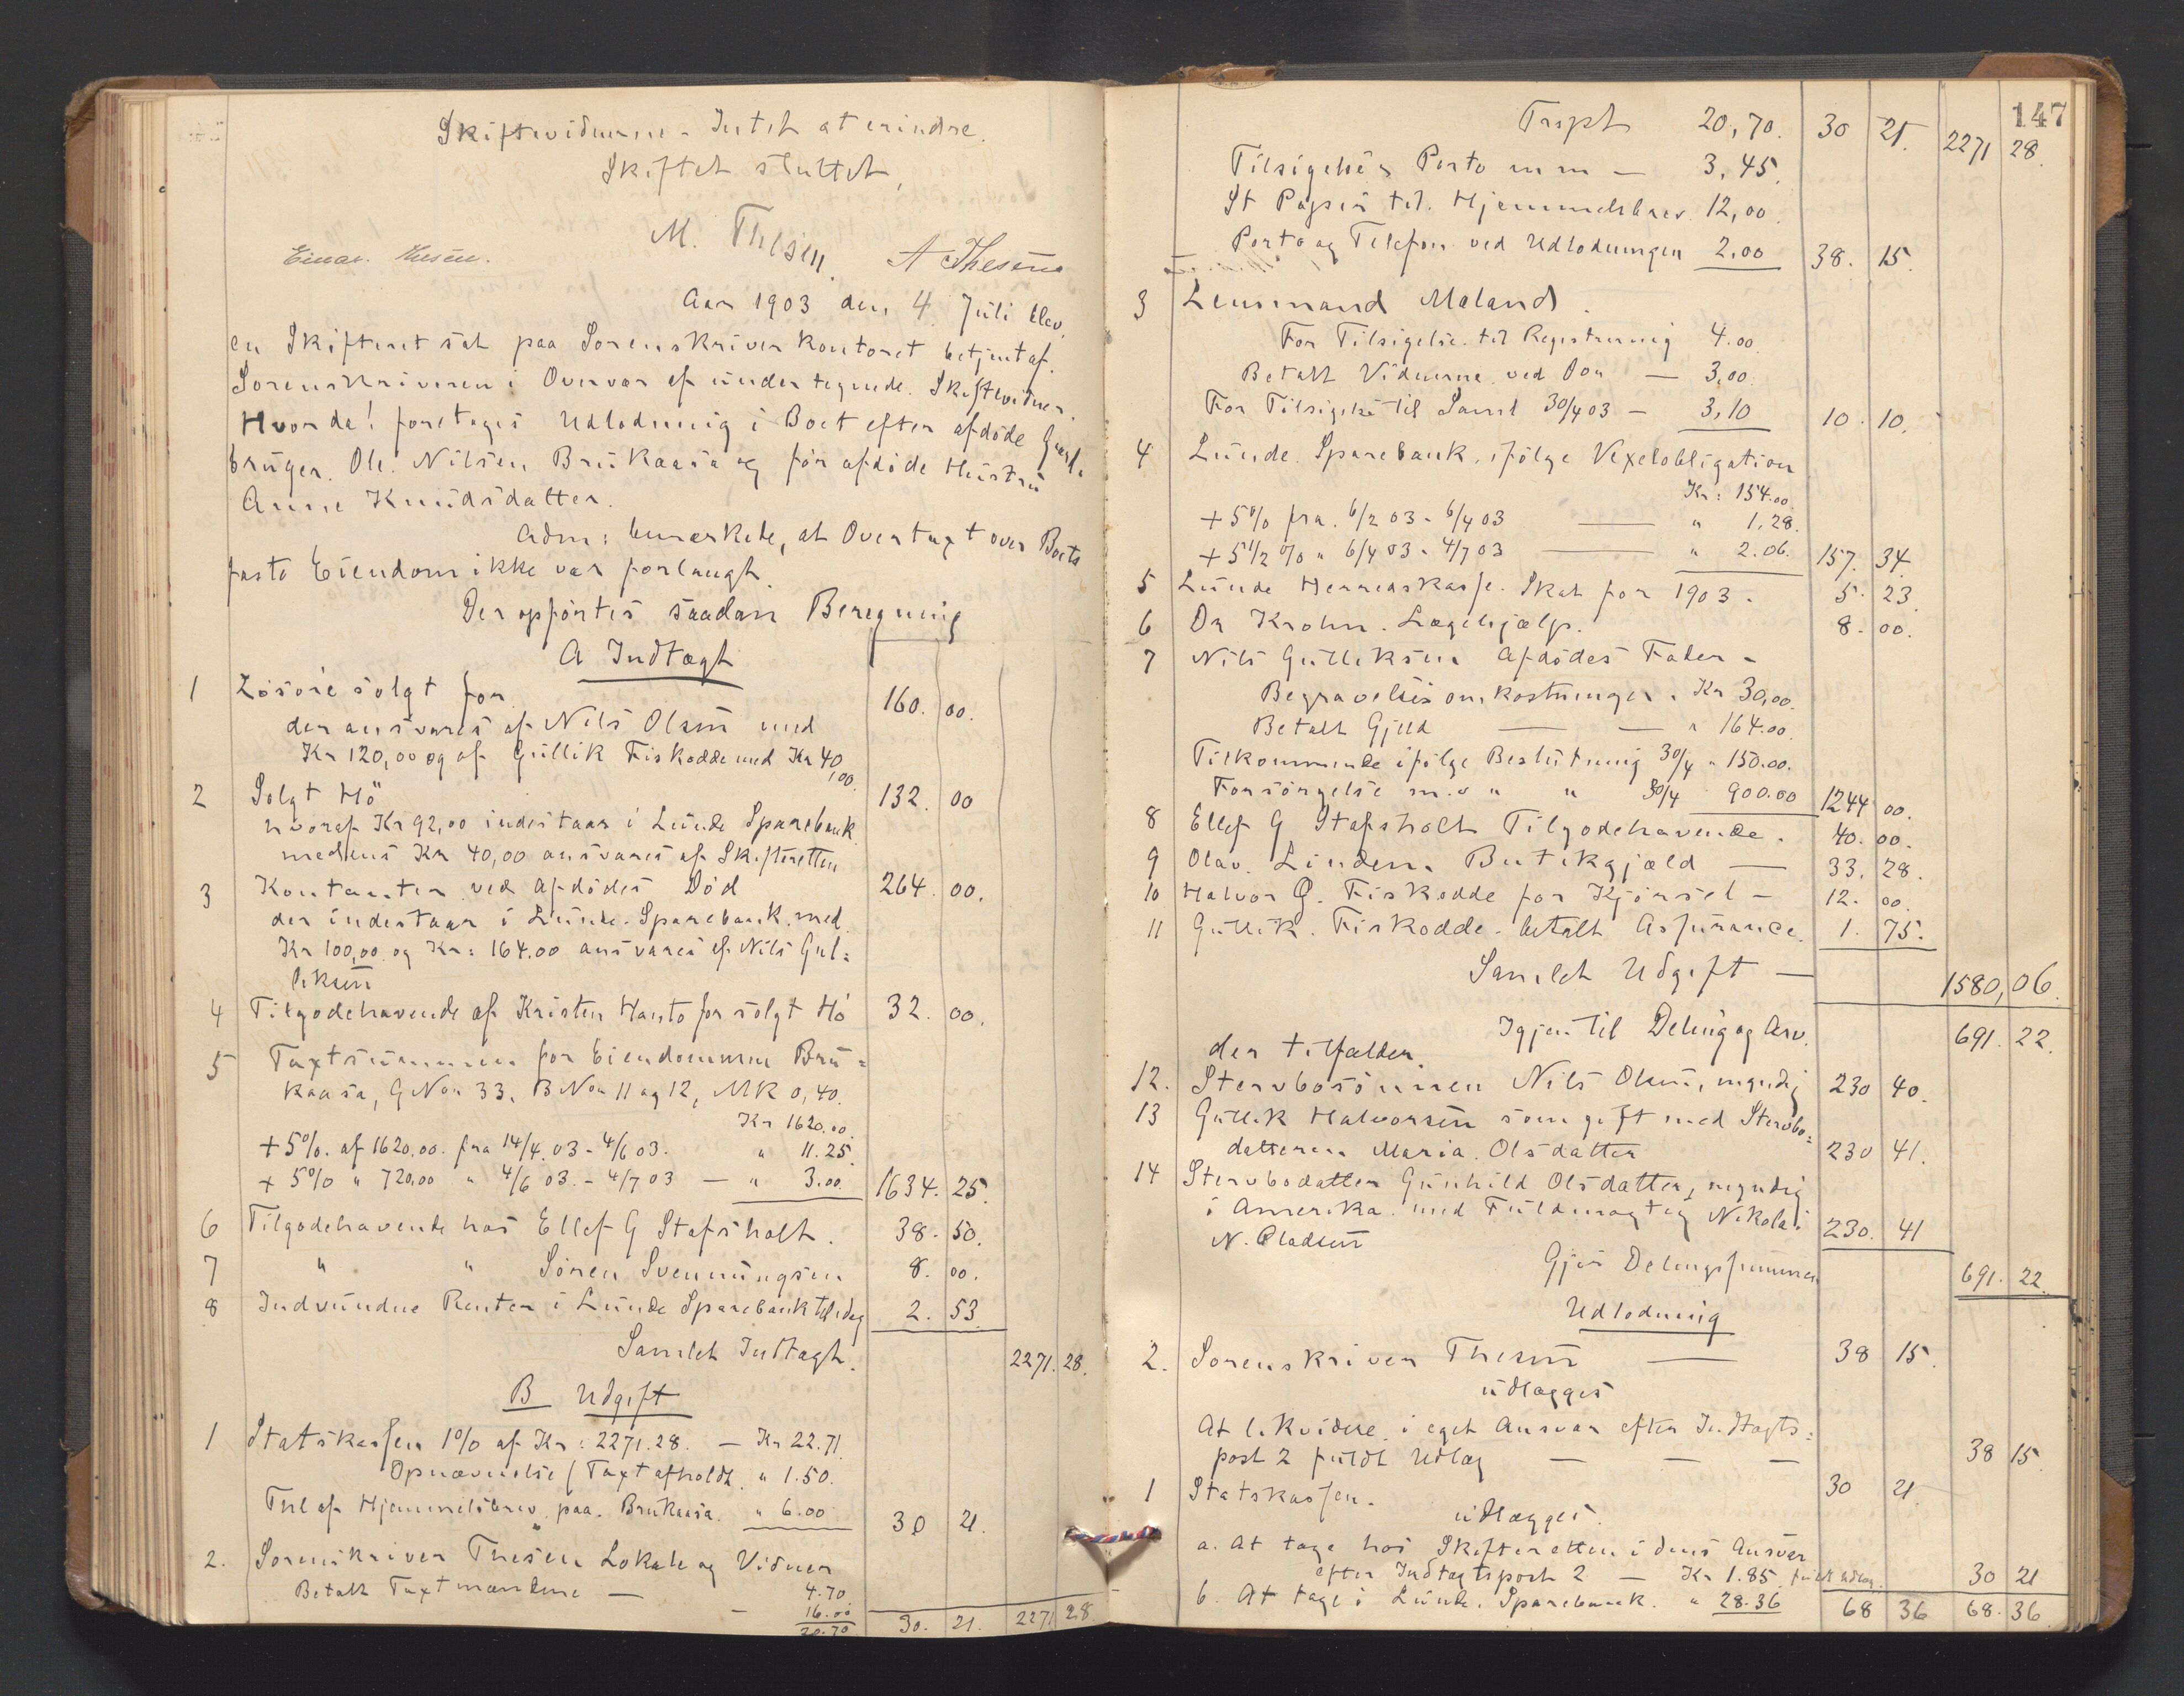 Skiftevidnerne - Intet at erindre.
Skiftet sluttet,
M. Thesen.
Einar. Thesen. A Thesene
Aar 1903 den 4 Juli blev
en Skifteret sat paa Sorenskriverkontoret betjent af.
Sorenskriveren i Overvær af undertegnede. Skiftevidner.
Hvorda! foretoges Udlodning i Boet efter afdöde Gaard-
brüger. Ole. Nilsen Brukaasa og för afdöde Hustrü
Anne Knudsdatter.
Adm: bemærkede, at Overtaxt over Boets
faste Eiendom ikke var forlangt.
Der opförtes saadan Beregning
A Indtægt
1 Lösöre solgt for 160. 00.
der ansvares af Nils Olsen med
Kr 120,00 og af Güllik Fiskodde med Kr 40
,00.
2 Solgt Hö 132. 00
hvoraf Kr 92,00 indestaar i Lünde Sparebank
medens Kr 40,00 ansvares af Skifteretten
3 Kontanter ved Afdödes Död 264. 00.
der indestaar i Lünde. Sparebank. med
Kr 100,00 og Kr: 164.00 ansvares af Nils Gul=
liksen
4 Tilgodehavende af Kristen Hanto for solgt Hö 32. 00.
5 Taxtsümmen for Eiendommen Brü=
kaasa, G No 33. B No 11 og 12, Mk 0,40.
Kr 1620.00.
+ 5%. af 1620,00. fra 14/4.03 - 4/6 03. " 11.25.
+ 5% " 720,00 " 4/6 03. - 4/7 03 — " 3.00. 1634. 25.
6 Tilgodehavende hos Ellef G Stafsholt. 38. 50.
7 " " Sören Svenningsen 8. 00.
8 Indvundne Renter i Lünde Sparebank til idag 2. 53
Samlet Indtægt. 2271. 28.
B Udgift
1 Statskassen 1% af Kr: 2271.28. — Kr 22.71
Opnævnelse (Taxt afholdt. " 1.50.
Thl af Hjemmelsbrev. paa. Brukaasa. " 6.00 30 21.
2. Sorenskriver Thesen Lokale og Vidner
4.70
Betalt Taxtmændene — — 16.00
20.70 30. 21. 2271 28
147
Trspt 20,70. 30 21. 2271 28.
Tilsigelse & Porto m m — 3,45.
St Papir til. Hjemmelsbrev. 12,00.
Porto og Telefon ved Udlodningen 2.00 38. 15.
3 Lensmand Maland.
For Tilsigelse til Registrering 4.00
Betalt Vidnerne ved Do — 3,00.
For Tilsigelse til Saml 30/4 03 — 3,10 10. 10.
4 Lünde. Sparebank. ifölge Vexelobligation
Kr: 154.00.
+ 5% fra. 6/2 03 - 6/4 03 — " 1,28.
+ 5 1/2 % " 6/4 03 - 4/7 03 — " 2.06. 157. 34.
5 Lünde Herredskasse. Skat for 1903. 5. 23
6 Dr Krohn. Lægehjælp. 8. 00.
7 Nils Gülliksen Afdödes Fader -
Begravelsesomkostninger. Kr 30,00.
Betalt Gjeld — — " 164.00.
Tilkommende ifölge Beslütning 30/4 " 150.00.
Forsörgelse m.v " " 30/4 900.00 1244 00.
8 Ellef G Stafsholt Tilgodehavende. 40. 00.
9 Olav. Linden. Butikgjæld — 33, 28.
10 Halvor G. Fiskodde for Kjörsel — 12. 00.
11 Güllik. Fiskodde. betalt Assurance. 1. 75.
Samlet Udgift — 1580,06.
Igjen til Deling og Arv. 691. 22.
der tilfalder.
12. Stervbosönnen Nils Olsen, myndig 230 40.
13 Güllik Halvorsen som gift med Stervbo=
datteren Maria. Olsdatter 230 41.
14 Stervbodatter Günhild Olsdatter, myndig
i Amerika. med Füldmægtig Nikolai
N. Pladsen 230. 41
Gjör Delingssummen 691. 22.
Udlodning
2. Sorenskriver Thesen — 38 15.
üdlægges
At likvidere. i eget Ansvar efter Indtægts=
post 2 füldt Udlæg — — — 38 15.
1 Statskassen. 30 21.
üdlægges.
a. At tage hos Skifteretten i dens Ansvar
efter Indtægtspost 2 — Kr 1.85. fuldt Udlæg. 30 21
b. At tage i Lünde. Sparebank. " 28.36 68 36 68. 36